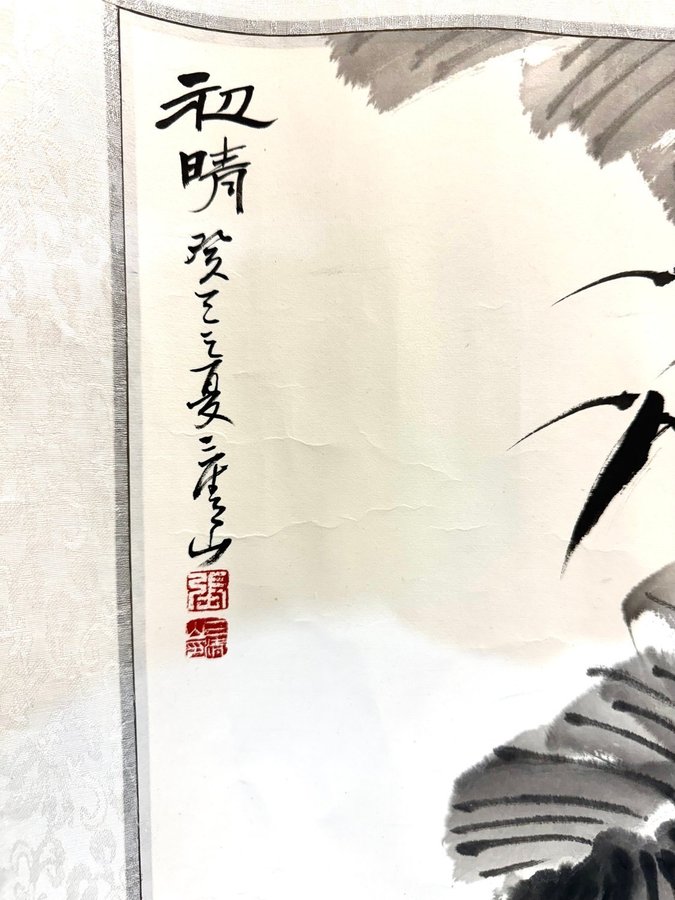 初晴 癸巳之夏 山
張